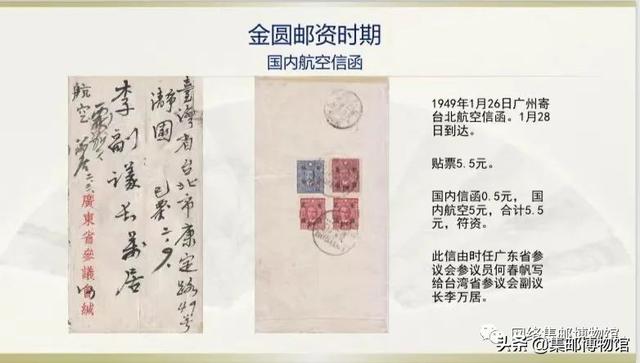 金圆邮资时期
国内航空信函
臺灣省台北市康定路49号
靜園
李副議長萬居
航空
廣東省參議會緘
1949年1月26日广州寄
台北航空信函。1月28
日到达。
贴票5.5元。
国内信函0.5元， 国
内航空5元，合计5.5
元，符资。
此信由时任广东省参
议会参议员何春帆写
给台湾省参议会副议
长李万居。
网络集邮博物馆
头条@集邮博物馆